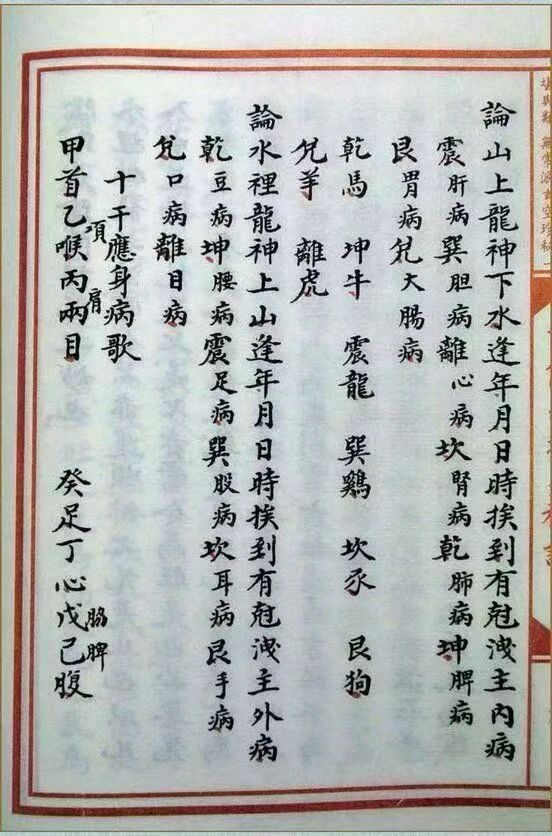 堪輿類 無常派玄空珍秘
論山上龍神下水逢年月日時挨到有尅洩主內病
震肝病巽胆病離心病坎腎病乾肺病坤脾病
艮胃病兊大腸病
乾馬 坤牛 震龍 巽鷄 坎豕 艮狗
兊羊 離虎
論水裡龍神上山逢年月日時挨到有尅洩主外病
乾豆病坤腰病震足病巽股病坎耳病艮手病
兊口病離目病
十干應身病歌
項 肩 脇脾
甲首乙喉丙兩目 癸足丁心戊己腹